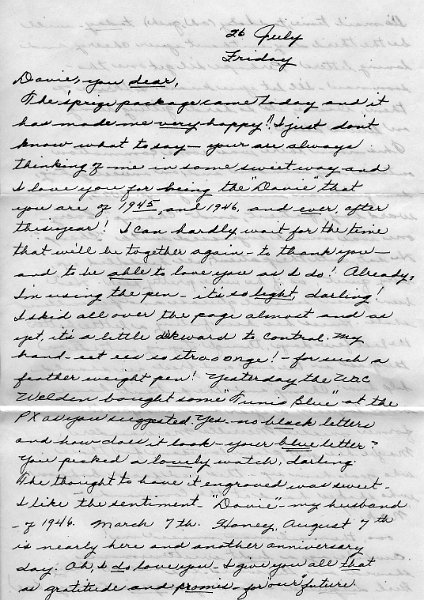 26 July
Friday
Davie, you dear,
The prize package came today and it
has made me very happy! I just don't
know what to say - your are always
thinking of me in some sweet way and
I love you for being the "Davie" that
you are of 1945, and 1946, and ever after
this year! I can hardly wait for the time
that will be together again - to thank you -
and to be able to love you as I do! Already,
I'm using the pen - it's so light, darling!
I skid all over the page almost and as
yet, it's a little akward to control. My
hand - eet ees so straoonge! - for such a
feather weight pen! Yesterday the WAC
Weldon bought some "Tunis Blue" at the
PX as you suggested. Yes - no black letters
and how does it look - your blue letter?
You picked a lovely watch, darling.
The thought to have it engraved was sweet -
I like the sentiment - "Davie" - my husband
- of 1946. March 7th. Honey, August 7th
is nearly here and another anniversary
day. Oh, I do love you - I give you all that
as gratitude and promise - for "our" future